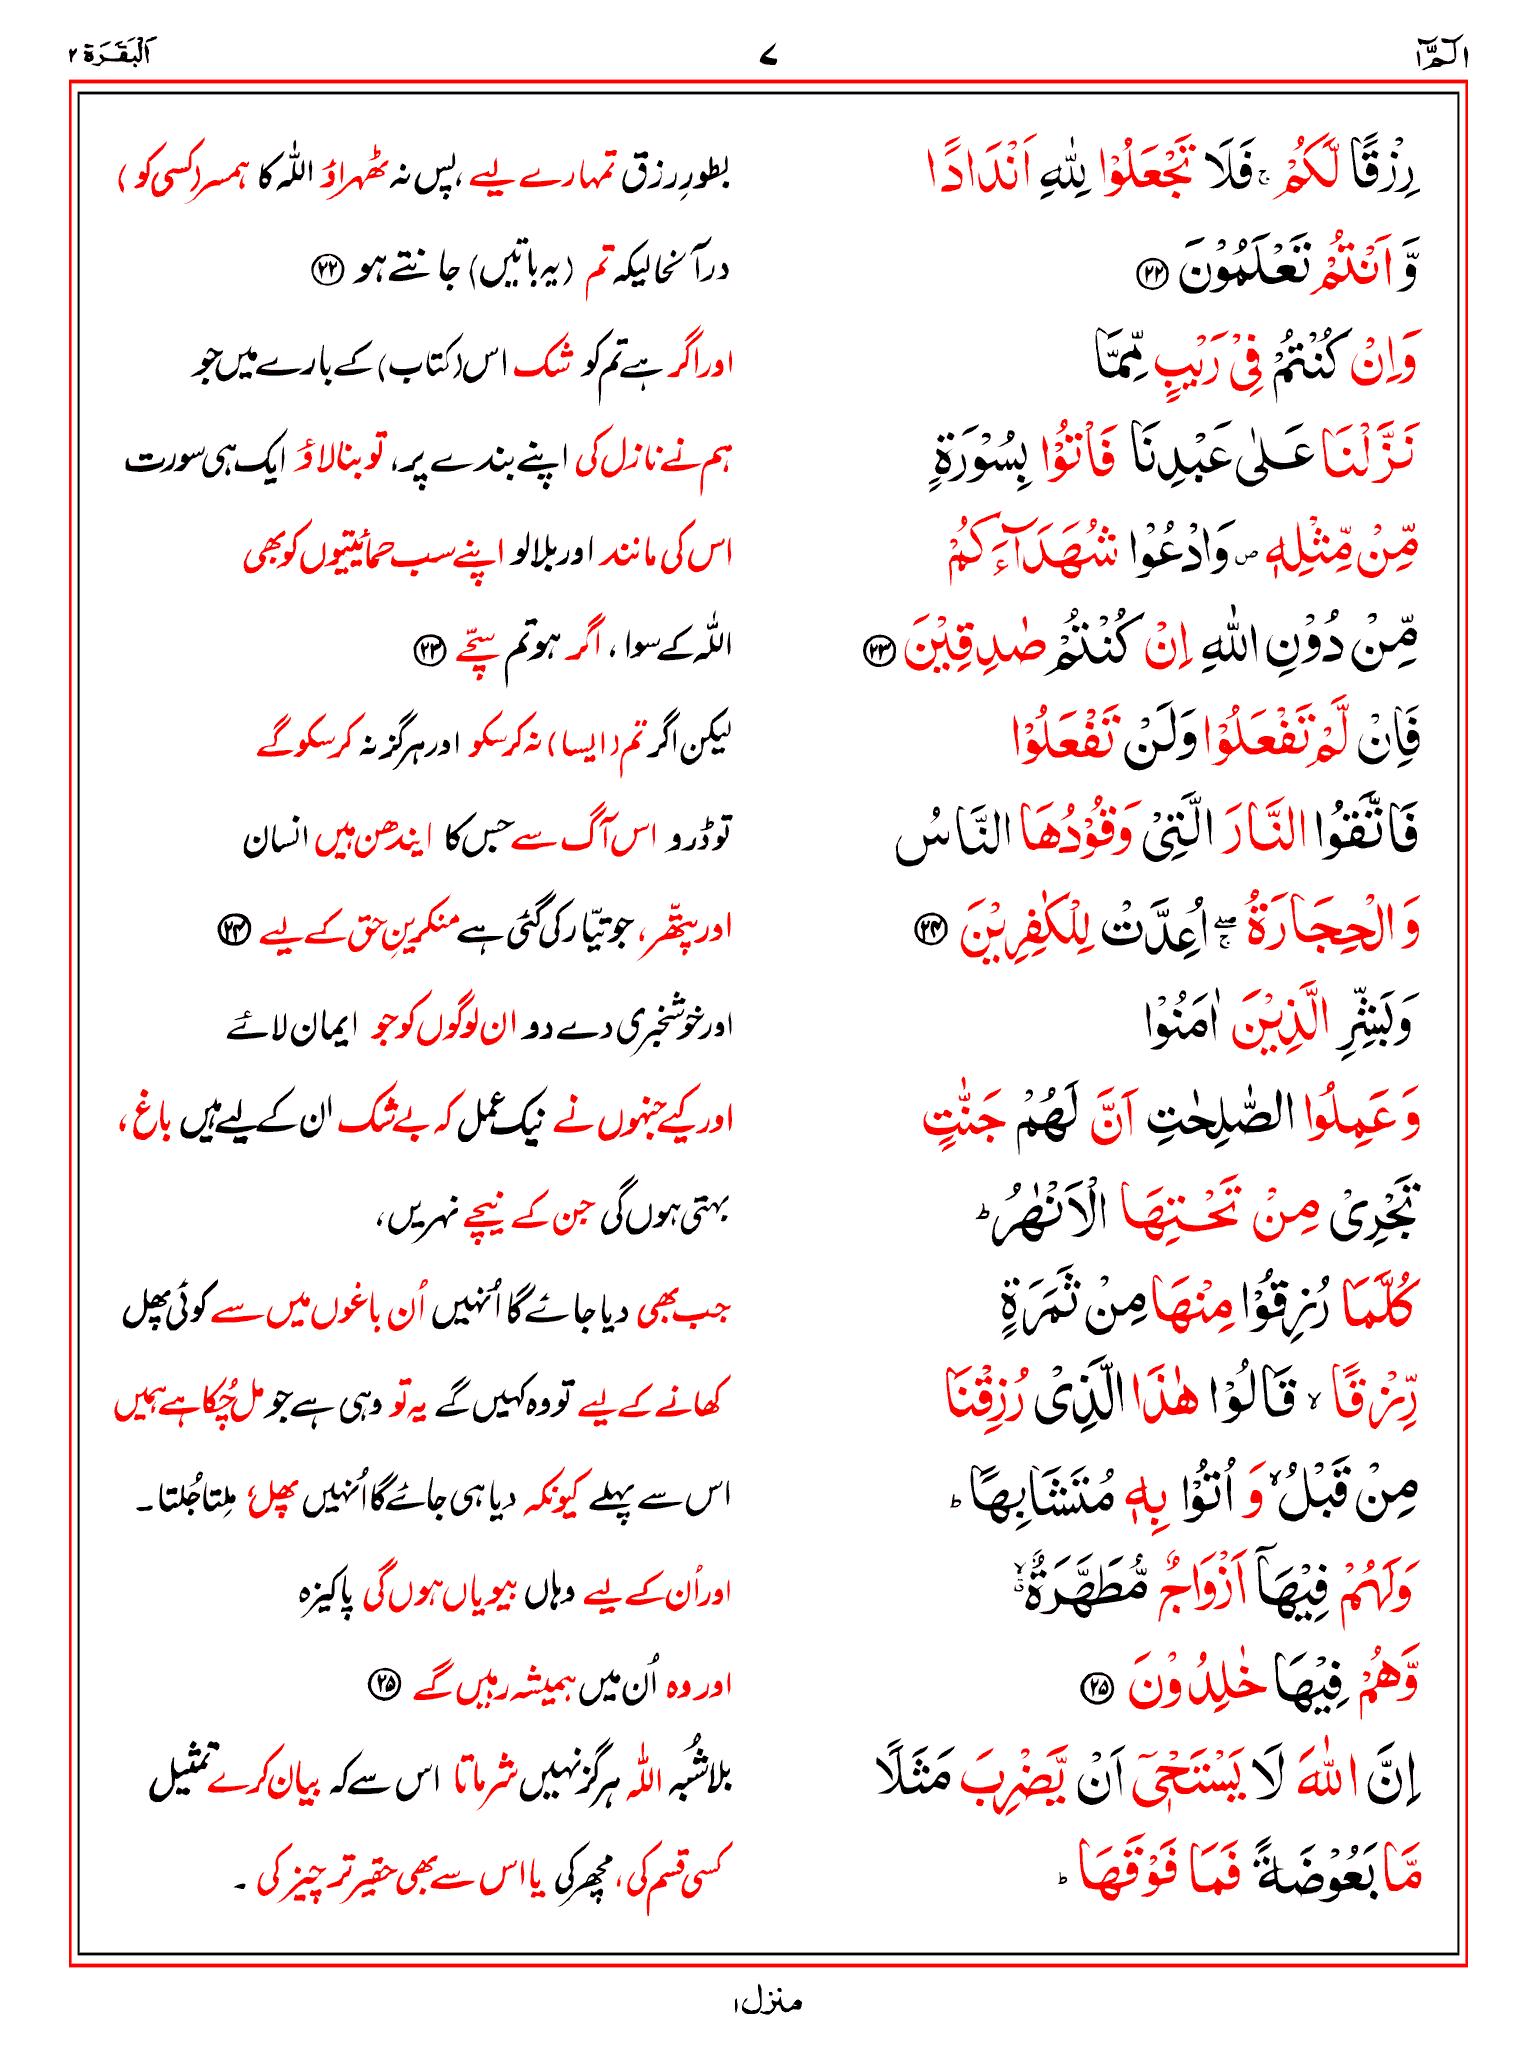 الٓـمّٓ ۱ ۷ اَلْبَقَرَة ۲
رِزْقًا لَّكُمْ ۚ فَلَا تَجْعَلُوْا لِلّٰهِ اَنْدَادًا بطورِ رزق تمہارے لیے ،پس نہ ٹھہراؤ اللہ کا ہمسر (کسی کو )
وَّ اَنْتُمْ تَعْلَمُوْنَ ۝۲۲ درآنحالیکہ تم (یہ باتیں) جانتے ہو ۝۲۲
وَاِنْ كُنْتُمْ فِیْ رَیْبٍ مِّمَّا اور اگر ہے تم کو شک اس (کتاب) کے بارے میں جو
نَزَّلْنَا عَلٰی عَبْدِنَا فَاْتُوْا بِسُوْرَةٍ ہم نے نازل کی اپنے بندے پر، تو بنالاؤ ایک ہی سورت
مِّنْ مِّثْلِهٖ ۪ وَادْعُوْا شُهَدَآءَكُمْ اس کی مانند اور بلالو اپنے سب حمائیتیوں کو بھی
مِّنْ دُوْنِ اللّٰهِ اِنْ كُنْتُمْ صٰدِقِیْنَ ۝۲۳ اللہ کے سوا ، اگر ہو تم سچّے ۝۲۳
فَاِنْ لَّمْ تَفْعَلُوْا وَلَنْ تَفْعَلُوْا لیکن اگر تم (ایسا) نہ کرسکو اور ہرگز نہ کرسکو گے
فَاتَّقُوا النَّارَ الَّتِیْ وَقُوْدُهَا النَّاسُ تو ڈرو اس آگ سے جس کا ایندھن ہیں انسان
وَالْحِجَارَةُ ۖۚ اُعِدَّتْ لِلْكٰفِرِیْنَ ۝۲۴ اور پتھّر ، جو تیّار کی گئی ہے منکرینِ حق کے لیے ۝۲۴
وَبَشِّرِ الَّذِیْنَ اٰمَنُوْا اور خوشخبری دے دو ان لوگوں کو جو ایمان لائے
وَعَمِلُوا الصّٰلِحٰتِ اَنَّ لَهُمْ جَنّٰتٍ اور کیے جنہوں نے نیک عمل کہ بے شک ان کے لیے ہیں باغ ،
تَجْرِیْ مِنْ تَحْتِهَا الْاَنْهٰرُ ؕ بہتی ہوں گی جن کے نیچے نہریں ،
كُلَّمَا رُزِقُوْا مِنْهَا مِنْ ثَمَرَةٍ جب بھی دیا جائے گا اُنہیں اُن باغوں میں سے کوئی پھل
رِّزْقًا ۙ قَالُوْا هٰذَا الَّذِیْ رُزِقْنَا کھانے کے لیے تو وہ کہیں گے یہ تو وہی ہے جو مل چُکا ہے ہمیں
مِنْ قَبْلُ ۙ وَ اُتُوْا بِهٖ مُتَشَابِهًا ؕ اس سے پہلے کیونکہ دیا ہی جائے گا اُنہیں پھل ملِتا جُلتا ۔
وَلَهُمْ فِیْهَاۤ اَزْوَاجٌ مُّطَهَّرَةٌ ۙۗ اور اُن کے لیے وہاں بیویاں ہوں گی پاکیزہ
وَّهُمْ فِیْهَا خٰلِدُوْنَ ۝۲۵ اور وہ اُن میں ہمیشہ رہیں گے ۝۲۵
اِنَّ اللّٰهَ لَا یَسْتَحْیٖۤ اَنْ یَّضْرِبَ مَثَلًا بلاشُبہ اللہ ہرگز نہیں شرماتا اس سے کہ بیان کرے تمثیل
مَّا بَعُوْضَةً فَمَا فَوْقَهَا ؕ کسی قسم کی، مچھر کی یا اس سے بھی حقیر تر چیز کی ۔
منزل ۱